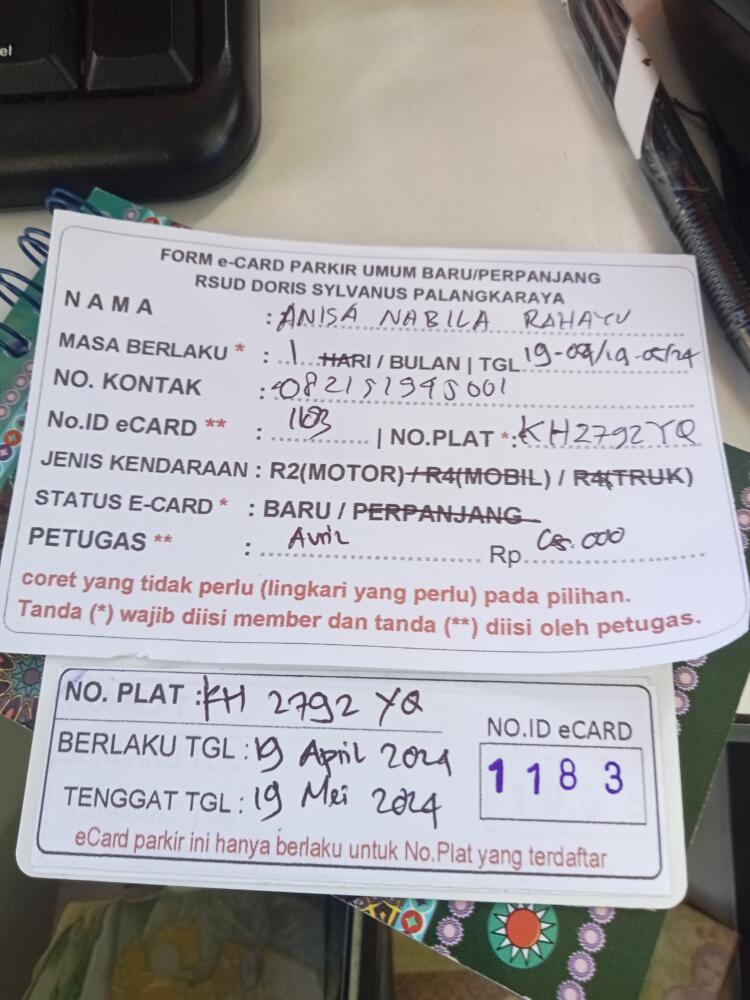 el
FORM e-CARD PARKIR UMUM BARU/PERPANJANG
RSUD DORIS SYLVANUS PALANGKARAYA
NAMA : ANISA NABILA RAHAYU
MASA BERLAKU * : 1 HARI / BULAN | TGL 19-04/19-05/24
NO. KONTAK : 082151945001
No.ID eCARD ** : 1183 | NO.PLAT *: KH2792YQ
JENIS KENDARAAN : R2(MOTOR) / R4(MOBIL) / R4(TRUK)
STATUS E-CARD * : BARU / PERPANJANG
PETUGAS ** : Avril Rp
coret yang tidak perlu (lingkari yang perlu) pada pilihan.
Tanda (*) wajib diisi member dan tanda (**) diisi oleh petugas.
NO. PLAT : KH 2792 YQ
BERLAKU TGL : 19 April 2024
NO.ID eCARD
1183
TENGGAT TGL : 19 Mei 2024
eCard parkir ini hanya berlaku untuk No.Plat yang terdaftar